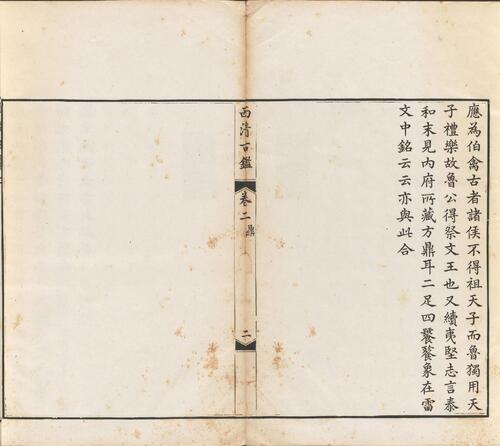 應為伯禽古者諸侯不得祖天子而魯獨用天
子禮樂故魯公得祭文王也又續夷堅志言泰
和末見內府所藏方鼎耳二足四饕餮象在雷
文中銘云云亦與此合
西清古鑑
卷二 鼎
二